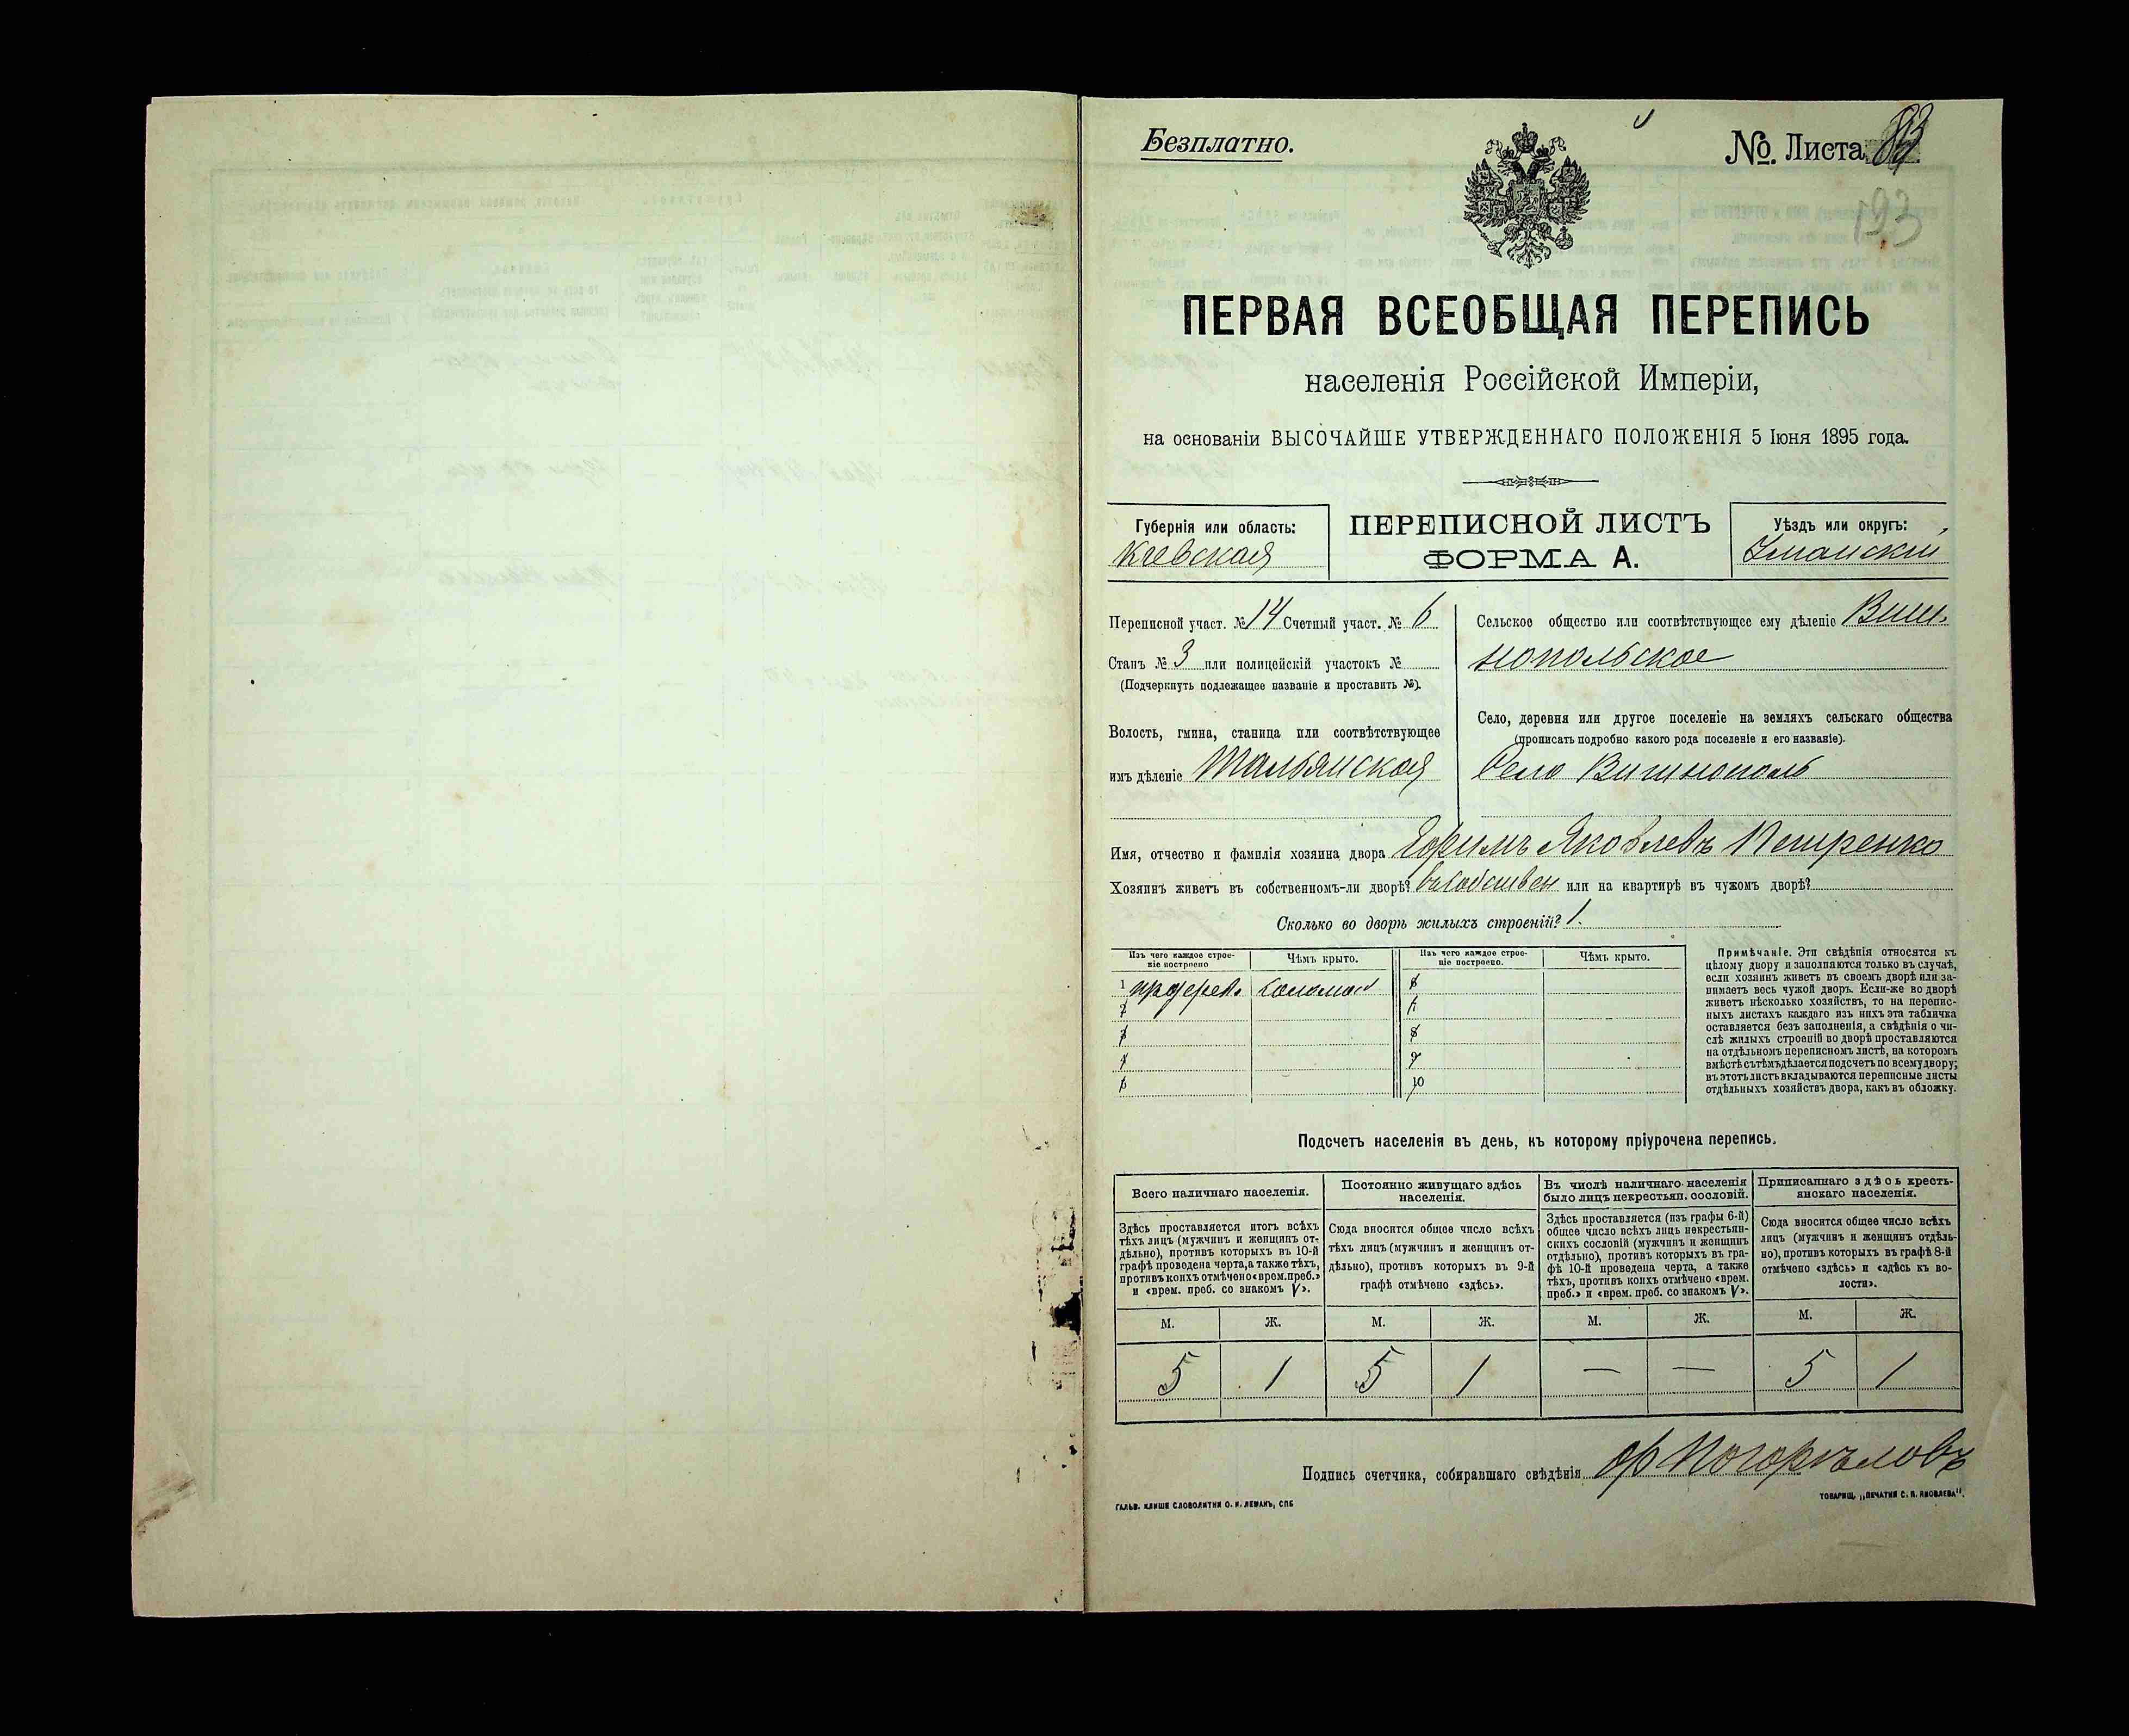 Безплатно.
No. Листа
193
ПЕРВАЯ ВСЕОБЩАЯ ПЕРЕПИСЬ
населенія Россійской Имперіи,
на основаніи ВЫСОЧАЙШЕ УТВЕРЖДЕННАГО ПОЛОЖЕНІЯ 5 Іюня 1895 года.
Губернія или область:
Кіевская
ПЕРЕПИСНОЙ ЛИСТЪ
ФОРМА А.
Уѣздъ или округъ:
Уманскій
Переписной участ. № 14 Счетный участ. № 6
Станъ № 3 или полицейскій участокъ №
(Подчеркнуть подлежащее названіе и проставить №).
Волость, гмина, станица или соотвѣтствующее
имъ дѣленіе Тальянская
Сельское общество или соотвѣтствующее ему дѣленіе Виш-
нопольское
Село, деревня или другое поселеніе на земляхъ сельскаго общества
(прописать подробно какого рода поселеніе и его названіе).
Село Вишнополь
Имя, отчество и фамилія хозяина двора Ефимъ Яковлевъ Петренко
Хозяинъ живетъ въ собственномъ-ли дворѣ? въ собствен или на квартирѣ въ чужомъ дворѣ?
Сколько во дворѣ жилыхъ строеній? 1.
Изъ чего каждое строе-
ніе построено
Чѣмъ крыто.
Изъ чего каждое строе-
ніе построено.
Чѣмъ крыто.
1 соломой
2
3
4
5
6
7
8
9
10
Примѣчаніе. Эти свѣдѣнія относятся къ
цѣлому двору и заполняются только въ случаѣ,
если хозяинъ живетъ въ своемъ дворѣ или за-
нимаетъ весь чужой дворъ. Если-же во дворѣ
живетъ нѣсколько хозяйствъ, то на перепис-
ныхъ листахъ каждаго изъ нихъ эта табличка
оставляется безъ заполненія, а свѣдѣнія о чи-
слѣ жилыхъ строеній во дворѣ проставляются
на отдѣльномъ переписномъ листѣ, на которомъ
вмѣстѣ съ тѣмъ дѣлается подсчетъ по всему двору;
въ этотъ листъ вкладываются переписные листы
отдѣльныхъ хозяйствъ двора, какъ въ обложку.
Подсчетъ населенія въ день, къ которому пріурочена перепись.
Всего наличнаго населенія.
Здѣсь проставляется итогъ всѣхъ
тѣхъ лицъ (мужчинъ и женщинъ от-
дѣльно), противъ которыхъ въ 10-й
графѣ проведена черта, а также тѣхъ,
противъ коихъ отмѣчено «врем. преб.»
и «врем. преб. со знакомъ V».
Постоянно живущаго здѣсь
населенія.
Сюда вносится общее число всѣхъ
тѣхъ лицъ (мужчинъ и женщинъ от-
дѣльно), противъ которыхъ въ 9-й
графѣ отмѣчено «здѣсь».
Въ числѣ наличнаго населенія
было лицъ некрестьян. сословій.
Здѣсь проставляется (изъ графы 6-й)
общее число всѣхъ лицъ некрестьян-
скихъ сословій (мужчинъ и женщинъ
отдѣльно), противъ которыхъ въ гра-
фѣ 10-й проведена черта, а также
тѣхъ, противъ коихъ отмѣчено «врем.
преб.» и «врем. преб. со знакомъ V».
Приписаннаго здѣсь кресть-
янскаго населенія.
Сюда вносится общее число всѣхъ
лицъ (мужчинъ и женщинъ отдѣль-
но), противъ которыхъ въ графѣ 8-й
отмѣчено «здѣсь» и «здѣсь къ во-
лости».
М. Ж. М. Ж. М. Ж. М. Ж.
5 1 5 1 — — 5 1
Подпись счетчика, собиравшаго свѣдѣнія Погорѣловъ
ГАЛЬВ. КЛИШЕ СЛОВОЛИТНИ О. И. ЛЕМАНЪ, СПБ
ТОВАРИЩ. „ПЕЧАТНЯ С. П. ЯКОВЛЕВА".